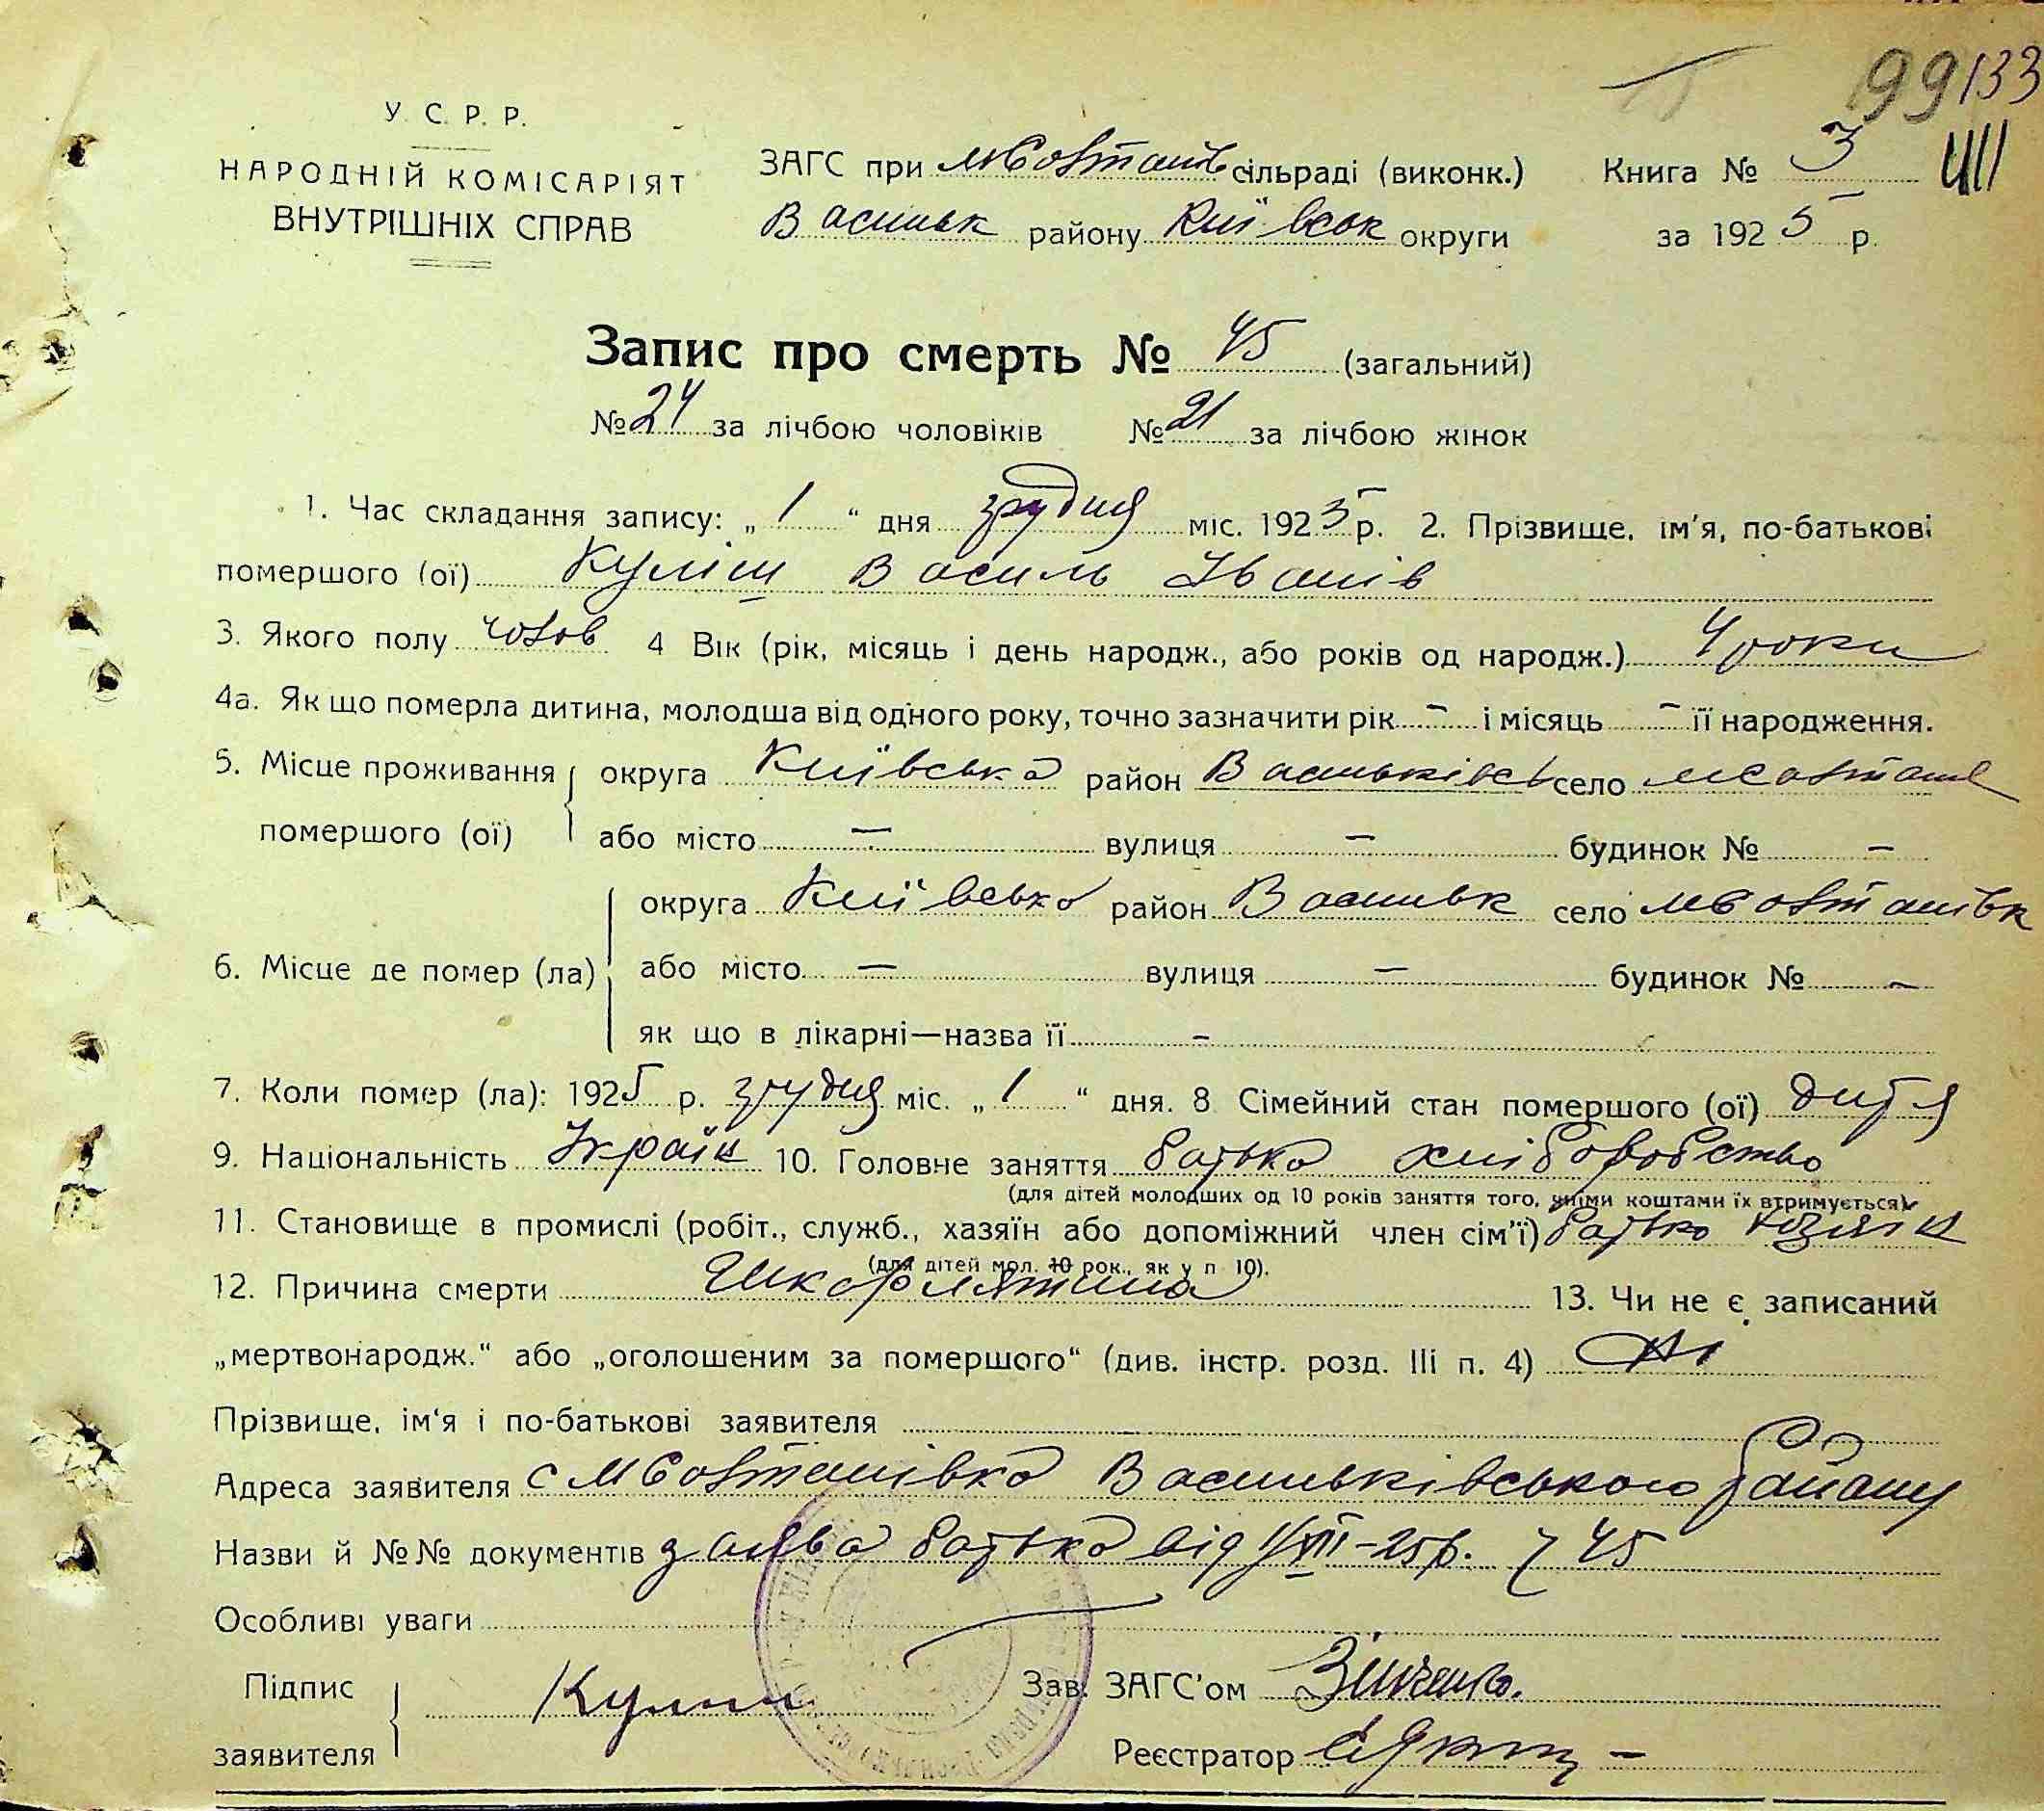 99 133
У. С. Р. Р.
НАРОДНІЙ КОМІСАРІЯТ
ВНУТРІШНІХ СПРАВ
ЗАГС при сільраді (виконк.)
Васильк району Київськ округи
Книга № 3
за 1925 р.
Запис про смерть № 45 (загальний)
№ 24 за лічбою чоловіків № 21 за лічбою жінок
1. Час складання запису: „ 1 “ дня грудня міс. 1925 р. 2. Прізвище, ім'я, по-батькові
помершого (ої) Куліш Василь Іванів
3. Якого полу чолов 4 Вік (рік, місяць і день народж., або років од народж.) 4 роки
4а. Як що померла дитина, молодша від одного року, точно зазначити рік – і місяць – її народження.
5. Місце проживання помершого (ої) округа Київська район Васильківськ село
або місто – вулиця – будинок № –
6. Місце де помер (ла) округа Київська район Васильк село
або місто – вулиця – будинок № –
як що в лікарні—назва її –
7. Коли помер (ла): 1925 р. грудня міс. „ 1 “ дня. 8 Сімейний стан помершого (ої) дитя
9. Національність Україн 10. Головне заняття батька хліборобство
(для дітей молодших од 10 років заняття того, чиїми коштами їх втримується)
11. Становище в промислі (робіт., служб., хазяїн або допоміжний член сім'ї) батько хазяїн
(для дітей мол. 10 рок., як у п 10).
12. Причина смерти Шкорлятина 13. Чи не є записаний
„мертвонародж.“ або „оголошеним за помершого“ (див. інстр. розд. III п. 4) Ні
Прізвище, ім'я і по-батькові заявителя
Адреса заявителя с Мотовилівка Васильківського району
Назви й №№ документів заява батька від 1/XII-25р. 45
Особливі уваги
Підпис заявителя Куліш
Зав. ЗАГС'ом Зінченко.
Реєстратор